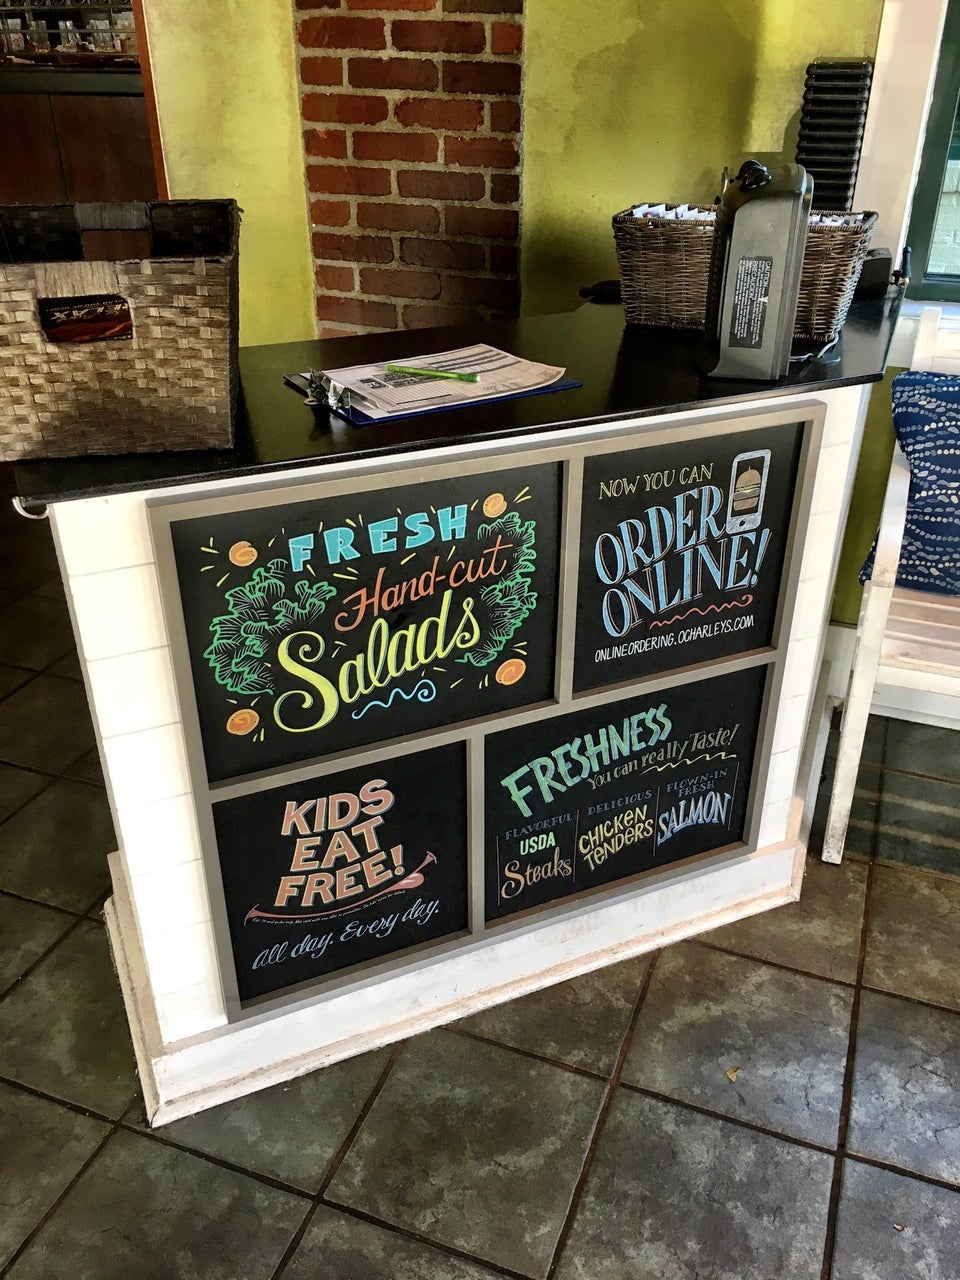 FRESH
Hand-cut
Salads
NOW YOU CAN
ORDER
ONLINE!
ONLINEORDERING.OCHARLEYS.COM
KIDS
EAT
FREE!
All day. Every day.
FRESHNESS
You can really Taste!
FLAVORFUL
USDA
Steaks
DELICIOUS
CHICKEN
TENDERS
FLOWN-IN
FRESH
SALMON
CAUTION